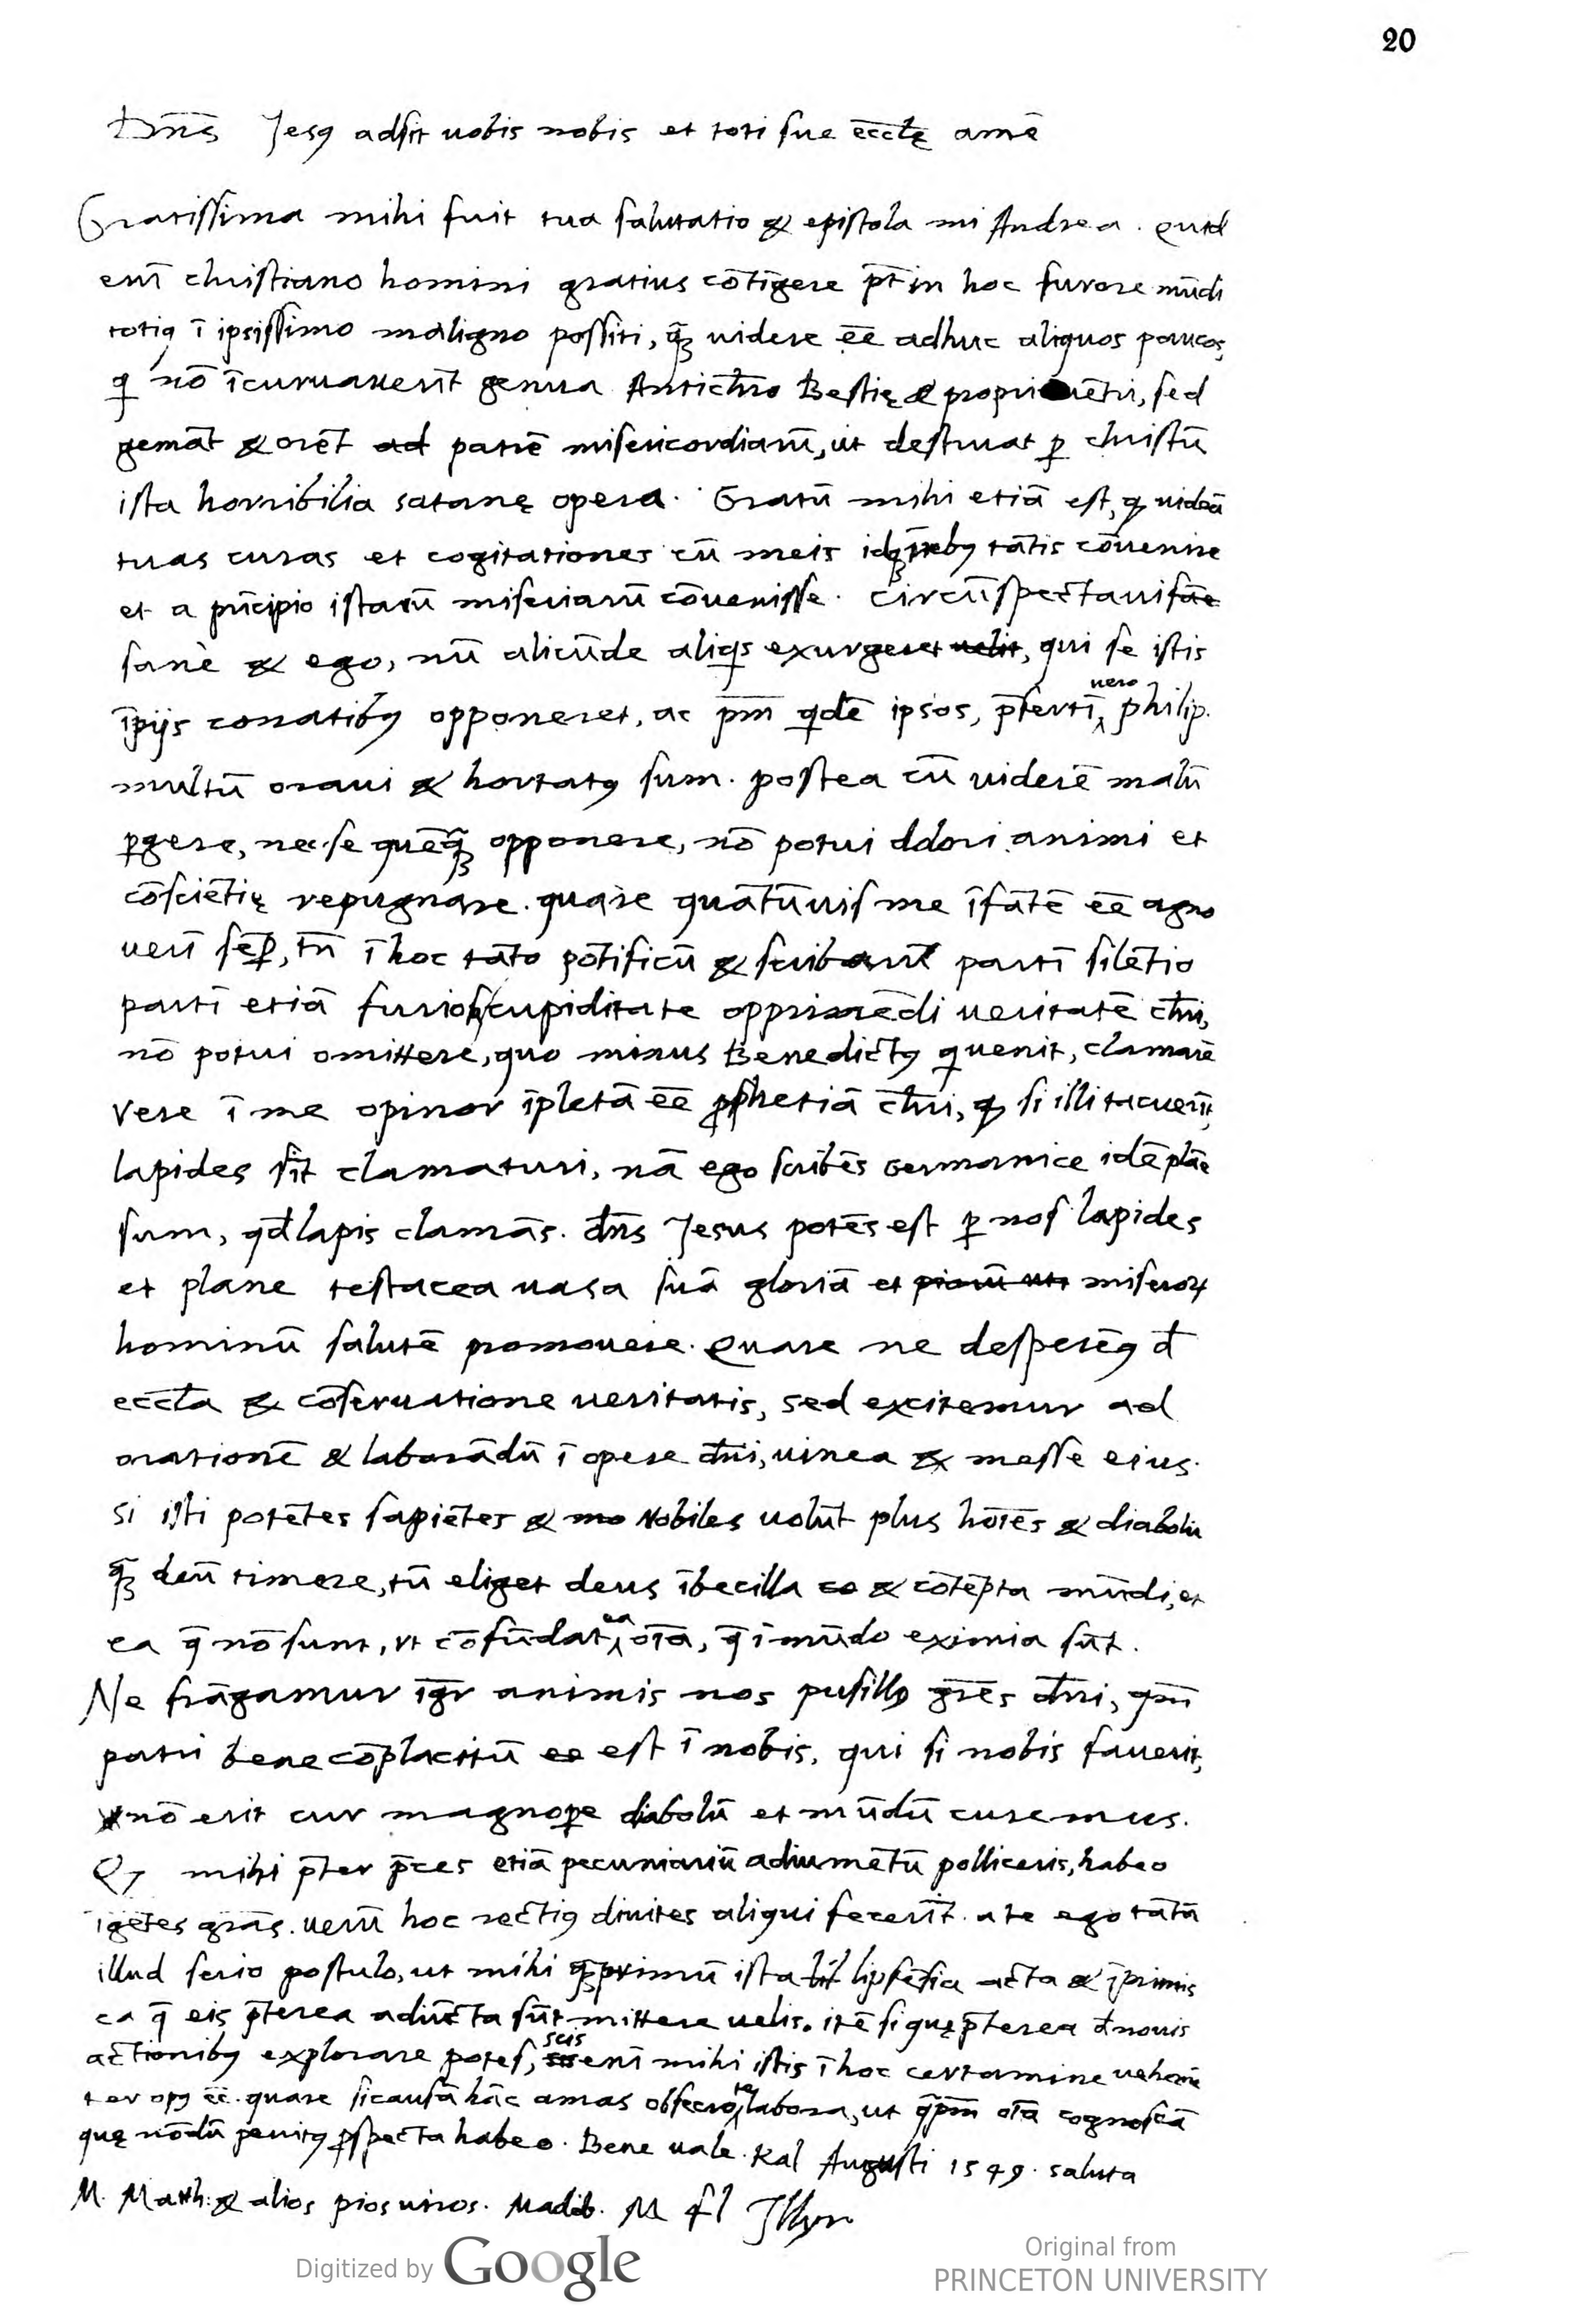 20
Dn̄s Jesꝯ adsit uobis nobis et toti sue eccl̄ę amē
Gratissima mihi fuit tua salutatio & epistola mi Andrea. Quid
eni᷈ christiano homini gratius cōti᷈gere pt̄ in hoc furore mūdi
totiꝯ ī ipsissimo maligno possiti, qꝫ̄ uidere eē adhuc aliquos paucos,
q nō īcuruauerīt genua Antichr̄o Bestię & sed
gemāt & orēt ad patrē misericordiarū, ut destruat ꝑ christū
ista horribilia satanę opera. Gratū mihi etiā est, ꝙ uideā
tuas curas et cogitationes cū meis tātis cōuenire
et a pri᷈cipio istarū miseriarū cōuenisse. Circūspectaui sāe
sanè & ego, nū alicūde aliqs exurgeret uelit, qui se istis
īpijs conatibꝯ opponeret, ac pm̄ qdē ipsos, p̄sertī uero philip.
multū oraui & hortatꝯ sum. postea cū uiderē malū
ꝑgere, nec se quēqꝫ̄ opponere, nō potui dolori animi et
cōsciētię repugnare. quare quātūuis me īfātē eē agno
ueri᷈ sēꝑ, tn̄ ī hoc tāto pōtificū & scribarū partī silētio
partī etiā furiosa cupiditate opprimēdi ueritatē chr̄i,
nō potui omittere, quo minus Benedictꝯ q uenit, clamarē
vere ī me opinor īpletā eē ꝓphetiā chr̄i, ꝙ si illi tacueri᷈t,
lapides sīt clamaturi, nā ego scribēs Germanice idē plāe
sum, qd̄ lapis clamās. dn̄s Jesus potēs est ꝑ nos lapides
et plane testacea uasa suā gloriā et piorū uts miseroꝝ
hominū salutē promouere. Quare ne desperēꝯ d̄
eccl̄a & cōseruatione ueritatis, sed excitemur ad
orationē & laborādū ī opere dn̄i, uinea & messe eius.
si isti potētes sapiētes & mo Nobiles uolūt plus hoīēs & diabolū
qꝫ̄ deū timere, tū eliget deus ībecilla co & cōtēpta mūdi, et
ea q̄ nō sunt, vt cōfūdat ea oīā, q̄ ī mūdo eximia sūt.
Ne frāgamur īgr̄ animis nos pusillꝯ gr̄es dn̄i, qm̄
patri bene cōplacitū ee est ī nobis. qui si nobis fauerit,
nō erit cur magnoꝑe diabolū et mūdū curemus.
Ꝙ mihi p̄ter p̄ces etiā pecuniariū adiumētū polliceris, habeo
īgētes grās. uerū hoc rectiꝯ diuites aliqui fecerīt. a te ego tātū
illud serio postulo, ut mihi qꝫ̄primū ista lit lipsēsia acta & īprimis
ea q̄ eis p̄terea adiūcta sūt mittere uelis. itē si quę p̄terea d̄ nouis
actionibꝯ explorare potes, scis eni᷈ mihi istis ī hoc certamine uehemē
ter opꝯ eē. quare si causā hāc amas obsecro te labora, ut q̄pm̄ oīā cognoscā
quę nōdū penitꝯ ꝑspecta habeo. Bene uale. Kal Augusti 1549. saluta
M. Matth: & alios pios uiros. Madeb. M fl Jllyr
Digitized by Google
Original from
PRINCETON UNIVERSITY